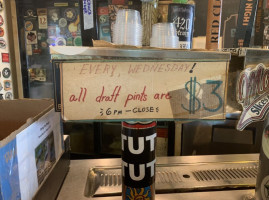 EVERY, WEDNESDAY!
all draft pints are $3
36PM - CLOSES
TUT
TUT
TUT